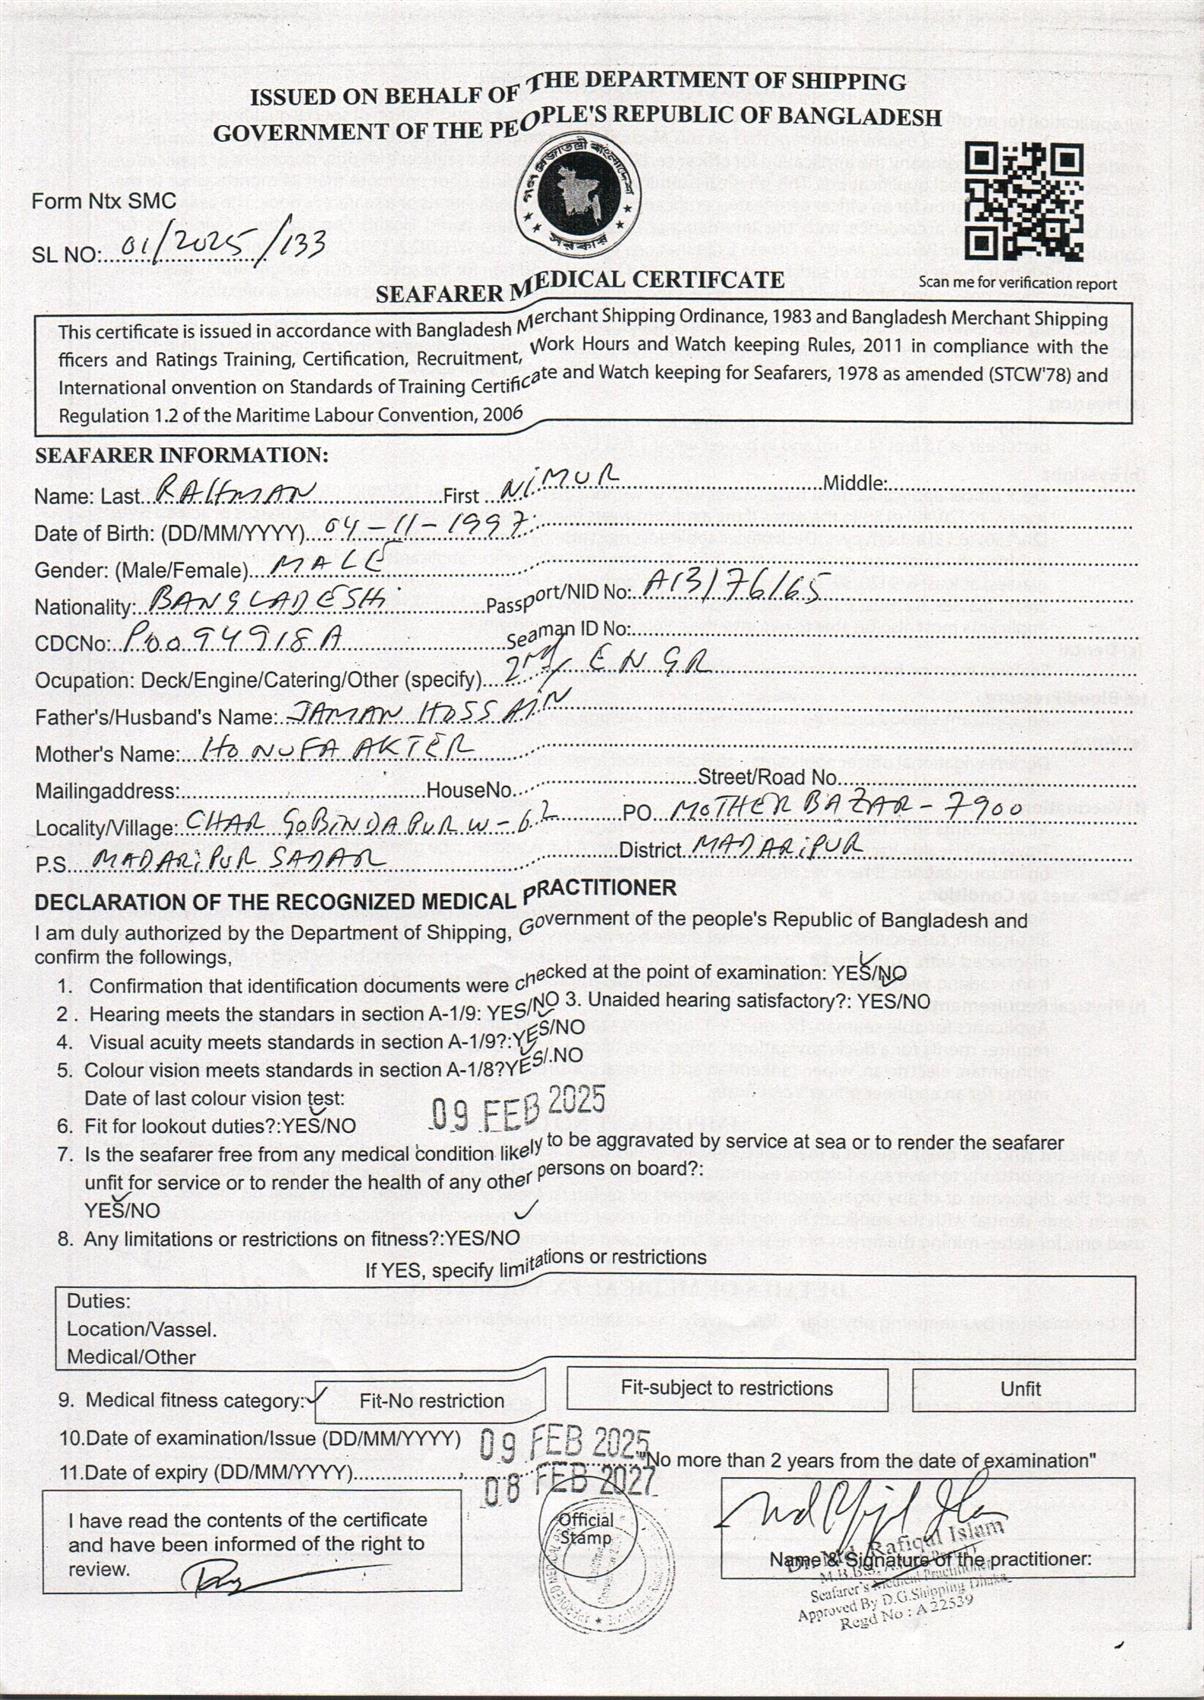 ISSUED ON BEHALF OF THE DEPARTMENT OF SHIPPING
GOVERNMENT OF THE PEOPLE'S REPUBLIC OF BANGLADESH
গণপ্রজাতন্ত্রী বাংলাদেশ
সরকার
Form Ntx SMC
SL NO: 01/2025/133
SEAFARER MEDICAL CERTIFCATE
Scan me for verification report
This certificate is issued in accordance with Bangladesh Merchant Shipping Ordinance, 1983 and Bangladesh Merchant Shipping
fficers and Ratings Training, Certification, Recruitment, Work Hours and Watch keeping Rules, 2011 in compliance with the
International onvention on Standards of Training Certificate and Watch keeping for Seafarers, 1978 as amended (STCW'78) and
Regulation 1.2 of the Maritime Labour Convention, 2006
SEAFARER INFORMATION:
Name: Last RAHMAN First NIMUR Middle:
Date of Birth: (DD/MM/YYYY) 04-11-1997
Gender: (Male/Female) MALE
Nationality: BANGLADESHi Passport/NID No:
CDCNo: Seaman ID No:
Ocupation: Deck/Engine/Catering/Other (specify) 2nd ENGR
Father's/Husband's Name: JAMAN HOSSAIN
Mother's Name: HONUFA AKTER
Mailingaddress: HouseNo. Street/Road No.
Locality/Village: CHAR GOBINDAPUR PO. MOTHER BAZAR-7900
P.S. MADARiPUR SADAR District MADARiPUR
DECLARATION OF THE RECOGNIZED MEDICAL PRACTITIONER
I am duly authorized by the Department of Shipping, Government of the people's Republic of Bangladesh and
confirm the followings,
1. Confirmation that identification documents were checked at the point of examination: YES/NO
2 . Hearing meets the standars in section A-1/9: YES/NO 3. Unaided hearing satisfactory?: YES/NO
4. Visual acuity meets standards in section A-1/9?:YES/NO
5. Colour vision meets standards in section A-1/8?YES/.NO
Date of last colour vision test: 09 FEB 2025
6. Fit for lookout duties?:YES/NO
7. Is the seafarer free from any medical condition likely to be aggravated by service at sea or to render the seafarer
unfit for service or to render the health of any other persons on board?:
YES/NO
8. Any limitations or restrictions on fitness?:YES/NO
If YES, specify limitations or restrictions
Duties:
Location/Vassel.
Medical/Other
9. Medical fitness category: Fit-No restriction Fit-subject to restrictions Unfit
10.Date of examination/Issue (DD/MM/YYYY) 09 FEB 2025
11.Date of expiry (DD/MM/YYYY) 08 FEB 2027 "No more than 2 years from the date of examination"
I have read the contents of the certificate
and have been informed of the right to
review.
Official
Stamp
Name & Signature of the practitioner:
Dr. Md. Rafiqul Islam
Seafarer's Medical Practitioner
Approved By D.G.Shipping Dhaka
Regd No : A 22539